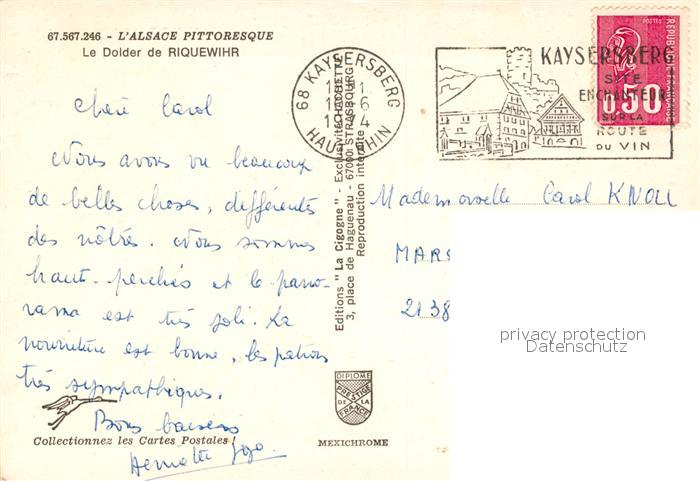 67.567.246 - L'ALSACE PITTORESQUE
Le Dolder de RIQUEWIHR
Chère Carol
Nous avons vu beaucoup
de belles choses, différentes
des nôtres. Nous sommes
haut-perchés et le pano-
rama est très joli. La
nourriture est bonne, les patrons
très sympathiques.
Bons baisers
Jojo
Collectionnez les Cartes Postales !
Editions "La Cigogne" - Exclusivité HACHETTE
3, place de Haguenau - 67000 STRASBOURG
Reproduction interdite
DIPLOME
PRESTIGE
DE LA
FRANCE
MEXICHROME
68 KAYSERSBERG
HAUT-RHIN
KAYSERSBERG
SITE
ENCHANTEUR
SUR LA
ROUTE
DU VIN
POSTES
REPUBLIQUE FRANCAISE
0,50
Mademoiselle Carol KNOLL
MARS
2138
privacy protection
Datenschutz